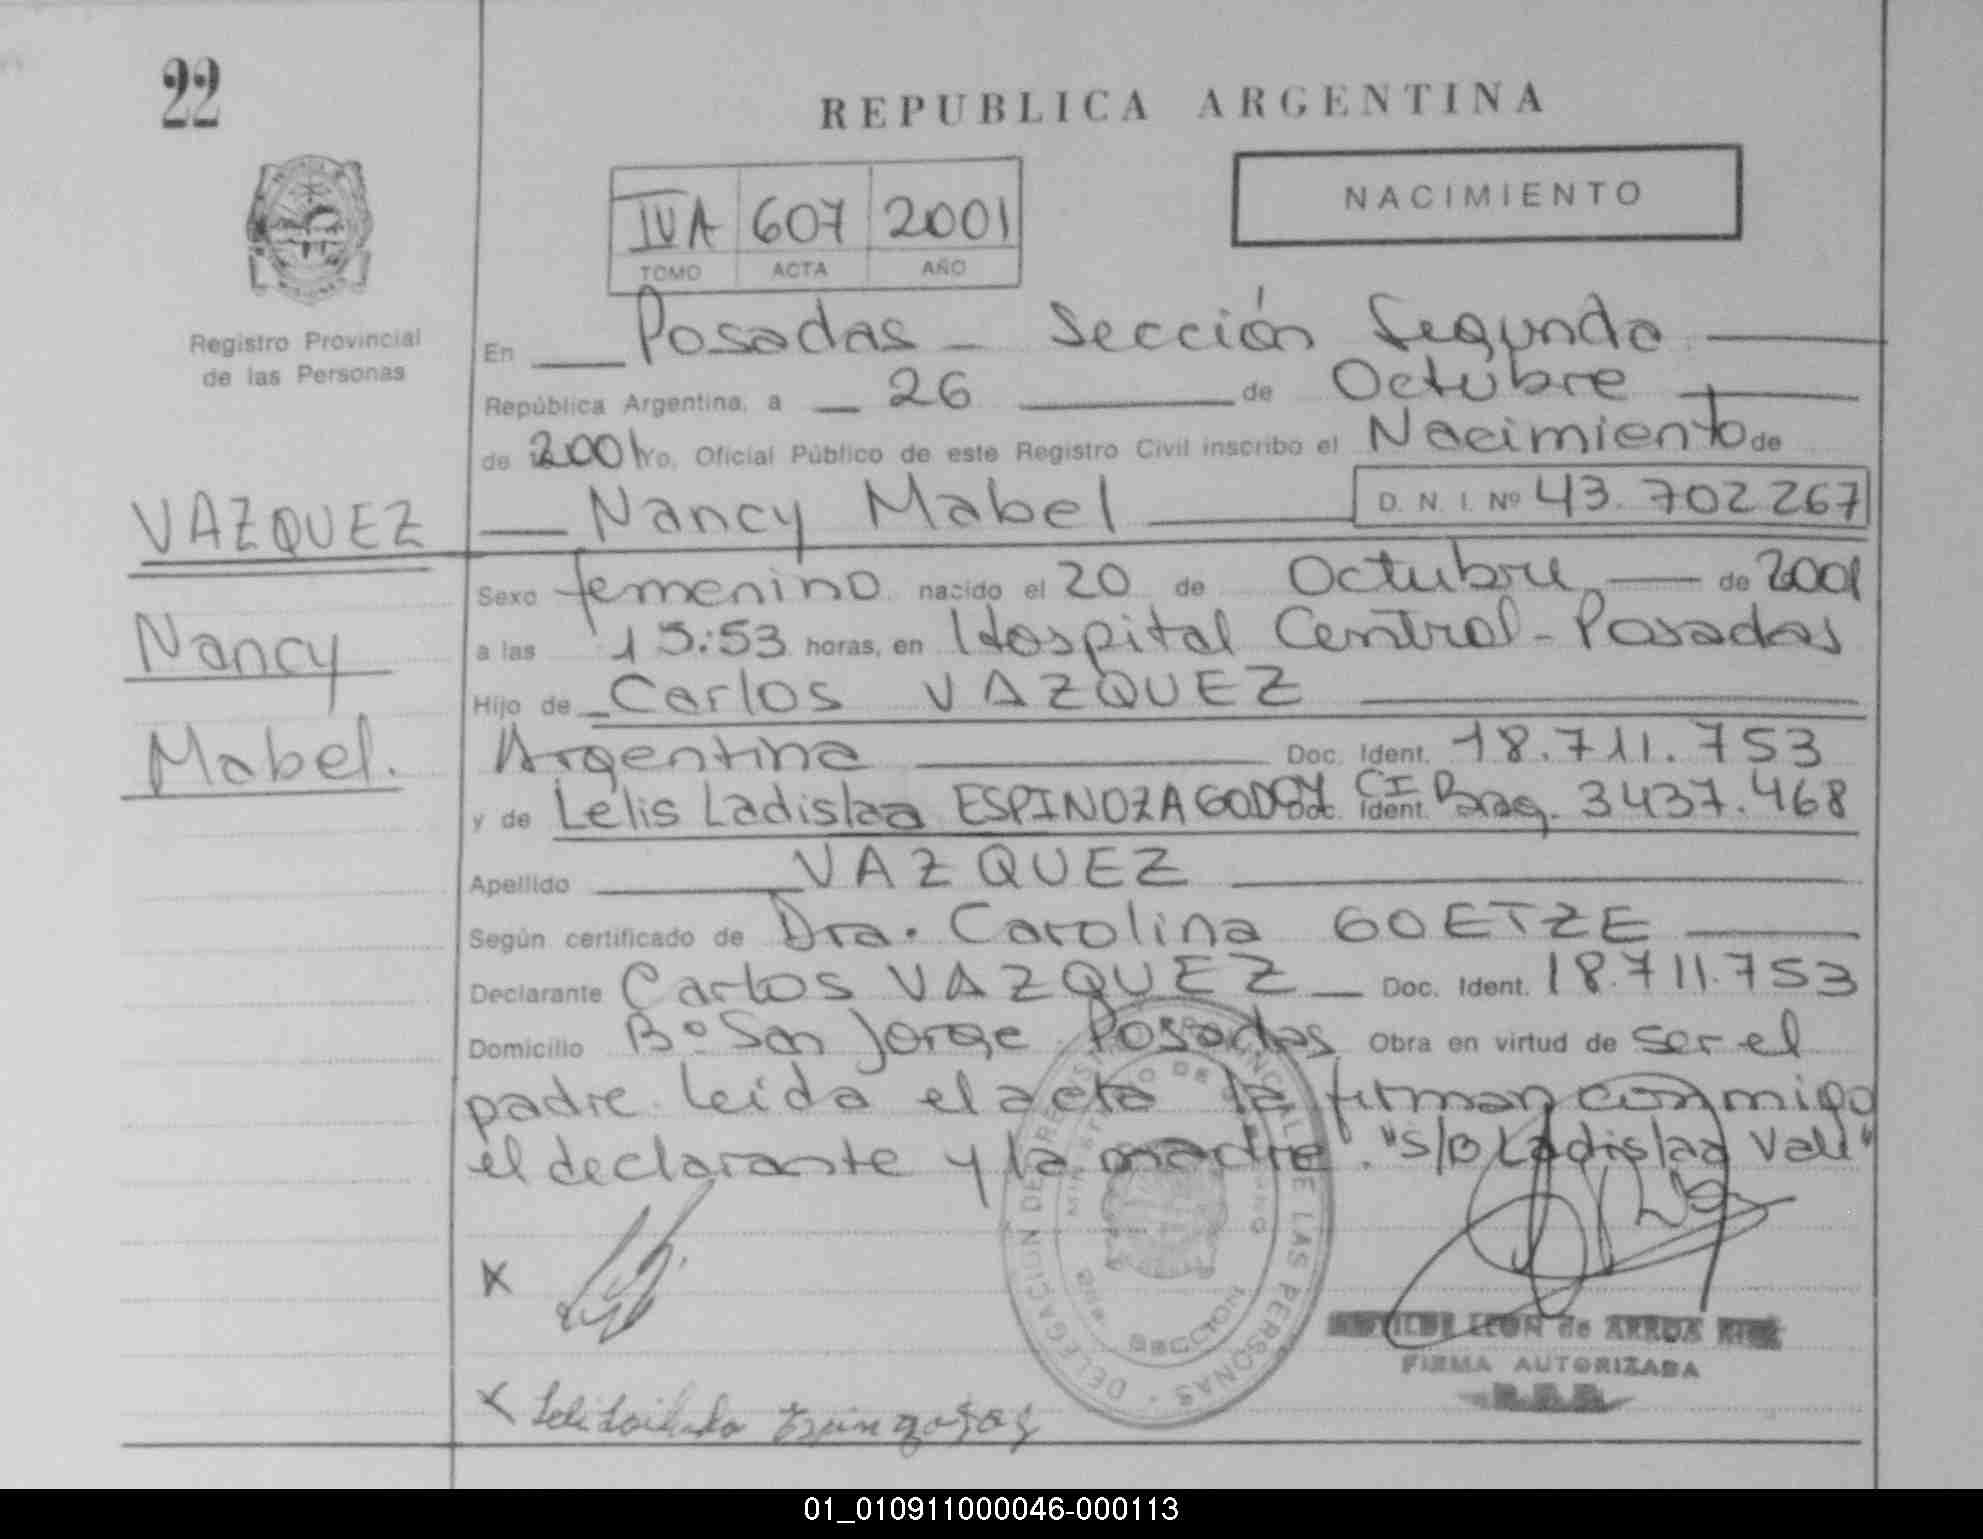 22
REPUBLICA ARGENTINA
NACIMIENTO
IVA 607 2001
TOMO ACTA AÑO
Registro Provincial
de las Personas
En Posadas - Sección Segunda
República Argentina, a 26 de Octubre
de 2001 Yo, Oficial Público de este Registro Civil inscribo el Nacimiento de
Nancy Mabel D. N. I. Nº 43.702267
VAZQUEZ
Nancy
Mabel.
Sexo femenino nacido el 20 de Octubre de 2001
a las 15:53 horas, en Hospital Central - Posadas
Hijo de Carlos VAZQUEZ
Argentina Doc. Ident. 18.711.753
y de Lelis Ladislaa ESPINOZA GODOY Doc. Ident. CI 3437.468
Apellido VAZQUEZ
Según certificado de Dra. Carolina GOETZE
Declarante Carlos VAZQUEZ Doc. Ident. 18.711.753
Domicilio Bº San Jorge Posadas Obra en virtud de ser el
padre. Leida el acta la firman conmigo
el declarante y la madre. "S/B Ladislaa Vale"
X
DELEGACION DE REGISTRO PROVINCIAL DE LAS PERSONAS
MINISTERIO DE GOBIERNO
SECCION
LEON de
FIRMA AUTORIZADA
X
01_010911000046-000113